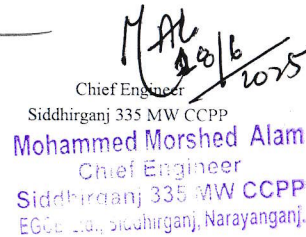 18/6
2025
Chief Engineer
Siddhirganj 335 MW CCPP
Mohammed Morshed Alam
Chief Engineer
Siddhirganj 335 MW CCPP
Siddhirganj, Narayanganj.